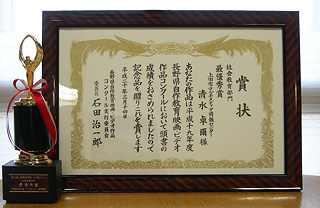 賞状
社会教育部門
最優秀賞
上田市マルチメディア情報センター
清水卓爾様
あなたの作品は平成十九年度
長野県自作教育映画・ビデオ
作品コンクールにおいて頭書の
成績をおさめられましたので
記念品を贈りこれを賞します
平成二十年三月十四日
長野県自作教育映画・ビデオ作品
コンクール実行委員会
委員長 石田治一郎